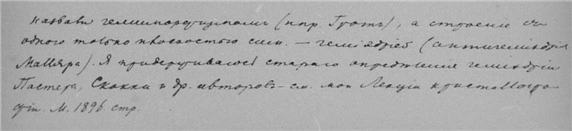 назвавъ гемиморфизмомъ (напр. Гротъ), а строенiе съ
одною только плоскостью симм. — гемiэдрiей (антигемiэдрiя
Малляра). Я придерживаюсь стараго опредѣленiя гемiэдрiи
Пастера, Скакки и др. авторовъ см. мои Лекцiи кристаллогра-
фiи М. 1896. стр.